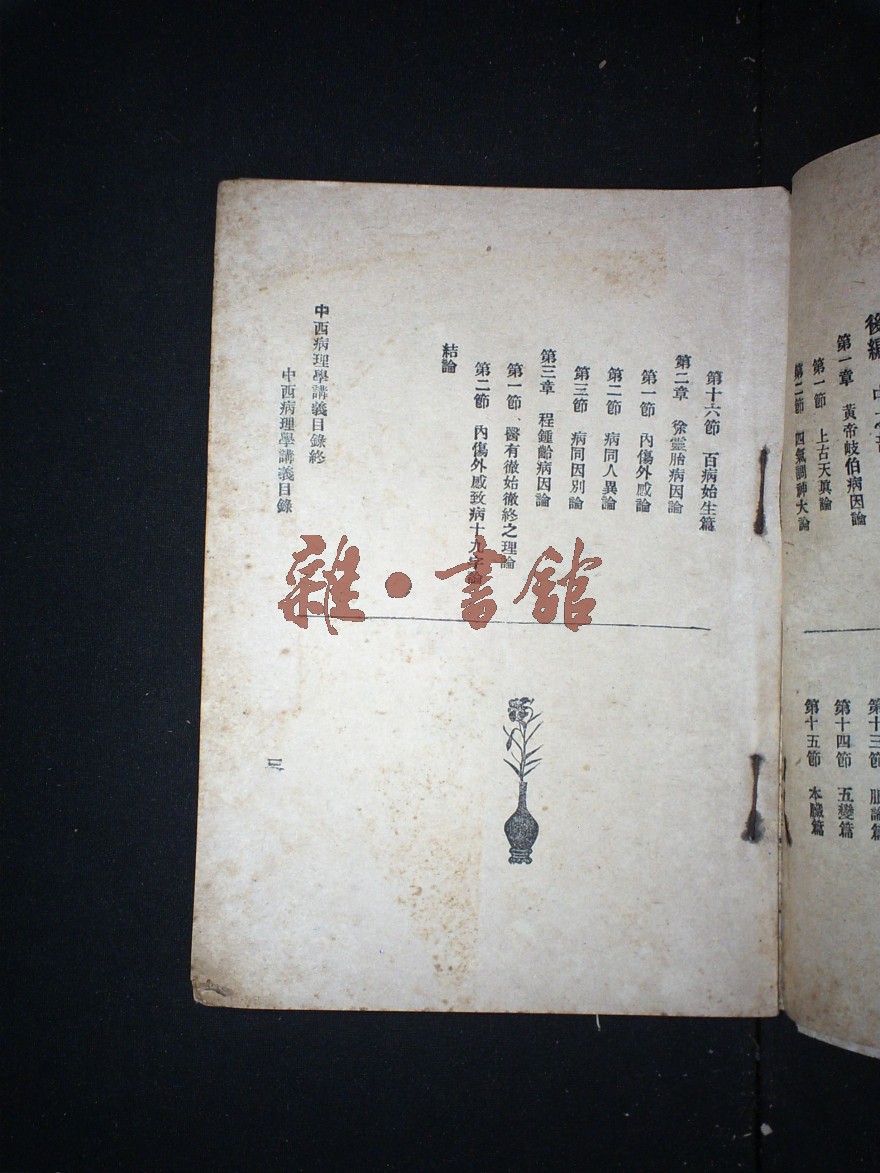 後編
第一章　黃帝岐伯病因論
第一節　上古天眞論
第二節　四氣調神大論
第十四節　五變篇
第十五節　本臟篇
第十六節　百病始生篇
第二章　徐靈胎病因論
第一節　內傷外感論
第二節　病同人異論
第三節　病同因別論
第三章　程鍾齡病因論
第一節、醫有徹始徹終之理論
第二節　內傷外感致病十九字論
結論
中西病理學講義目錄終
中西病理學講義目錄
雜·書館